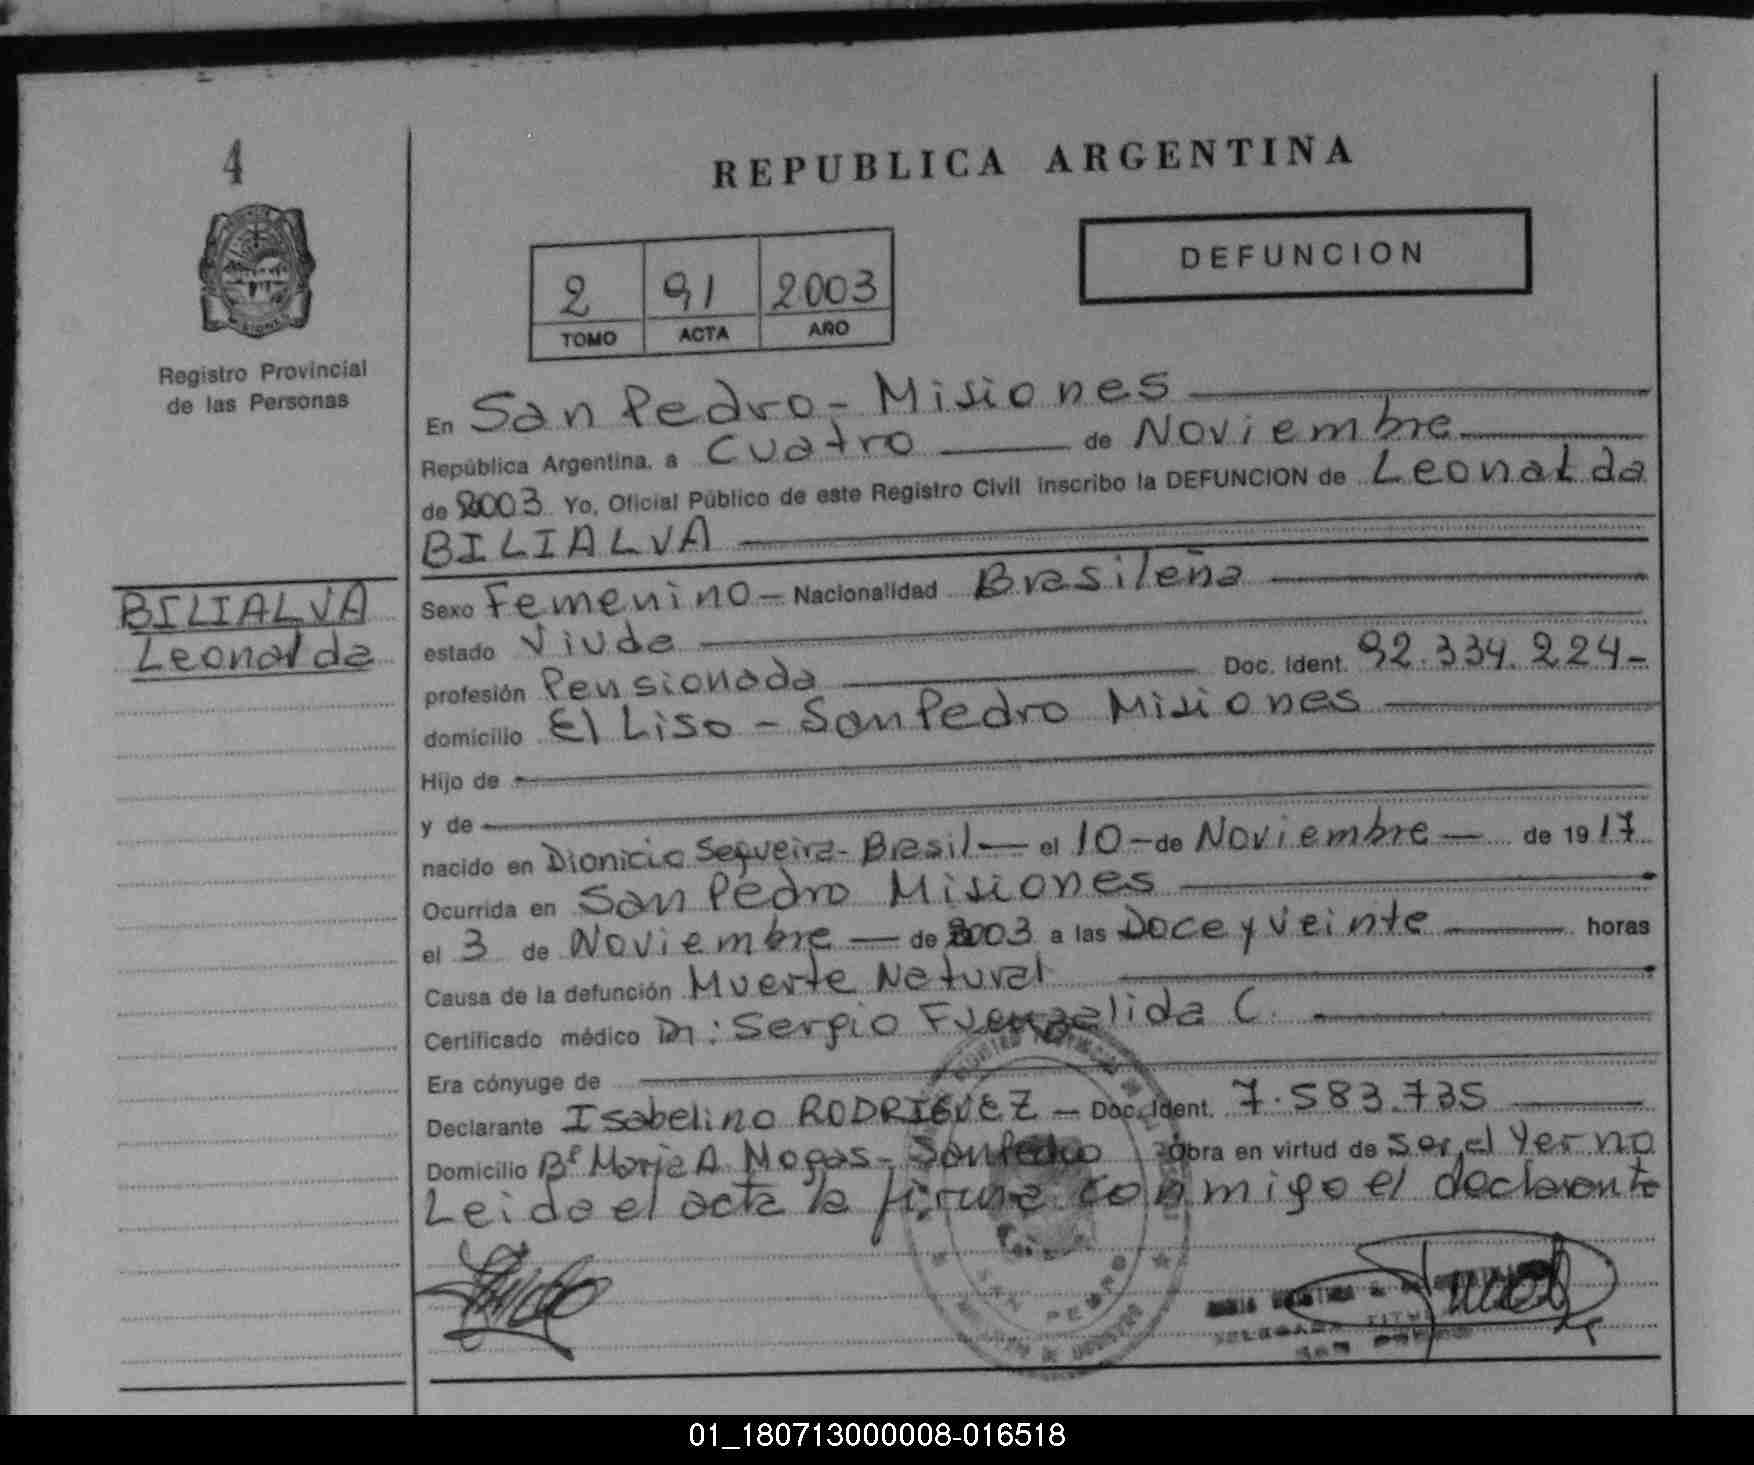 4
REPUBLICA ARGENTINA
DEFUNCION
2 91 2003
TOMO ACTA AÑO
Registro Provincial
de las Personas
En San Pedro - Misiones
República Argentina, a Cuatro de Noviembre
de 2003 Yo, Oficial Público de este Registro Civil inscribo la DEFUNCION de Leonalda
BILIALVA
BILIALVA
Leonalda
Sexo Femenino - Nacionalidad Brasileña
estado Viuda
profesión Pensionada Doc. Ident. 92.334.224-
domicilio El Liso - San Pedro Misiones
Hijo de
y de
nacido en Dionicio Seqveira - Brasil - el 10 - de Noviembre - de 1917
Ocurrida en San Pedro Misiones
el 3 de Noviembre - de 2003 a las Doce y veinte horas
Causa de la defunción Muerte Natural
Certificado médico Dr: Sergio Fuenzalida C.
Era cónyuge de
Declarante Isabelino RODRIGUEZ - Doc. Ident. 7.583.735
Domicilio Bº Maria A. Mogas - San Pedro Obra en virtud de ser el Yerno
Leida el acta la firma conmigo el declarante
SAN PEDRO
01_180713000008-016518